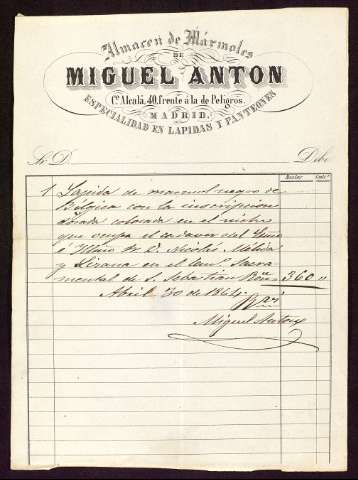 Almacen de Mármoles
DE
MIGUEL ANTON
C. Alcalá, 40, frente á la de Peligros.
MADRID.
ESPECIALIDAD EN LAPIDAS Y PANTEONES
Sr. D. Debe
Reales Cents.
1 Lapida de marmol negro de
Bélgica con la inscripcion
dorada colocada en el nicho
que ocupa el cadaver del
é Yltmo Sr. D. Nicolás Melida
y Lizana en el Sacra-
mental de S. Sebastian Rvn 360 "
Abril 30 de 1864.
Miguel Anton